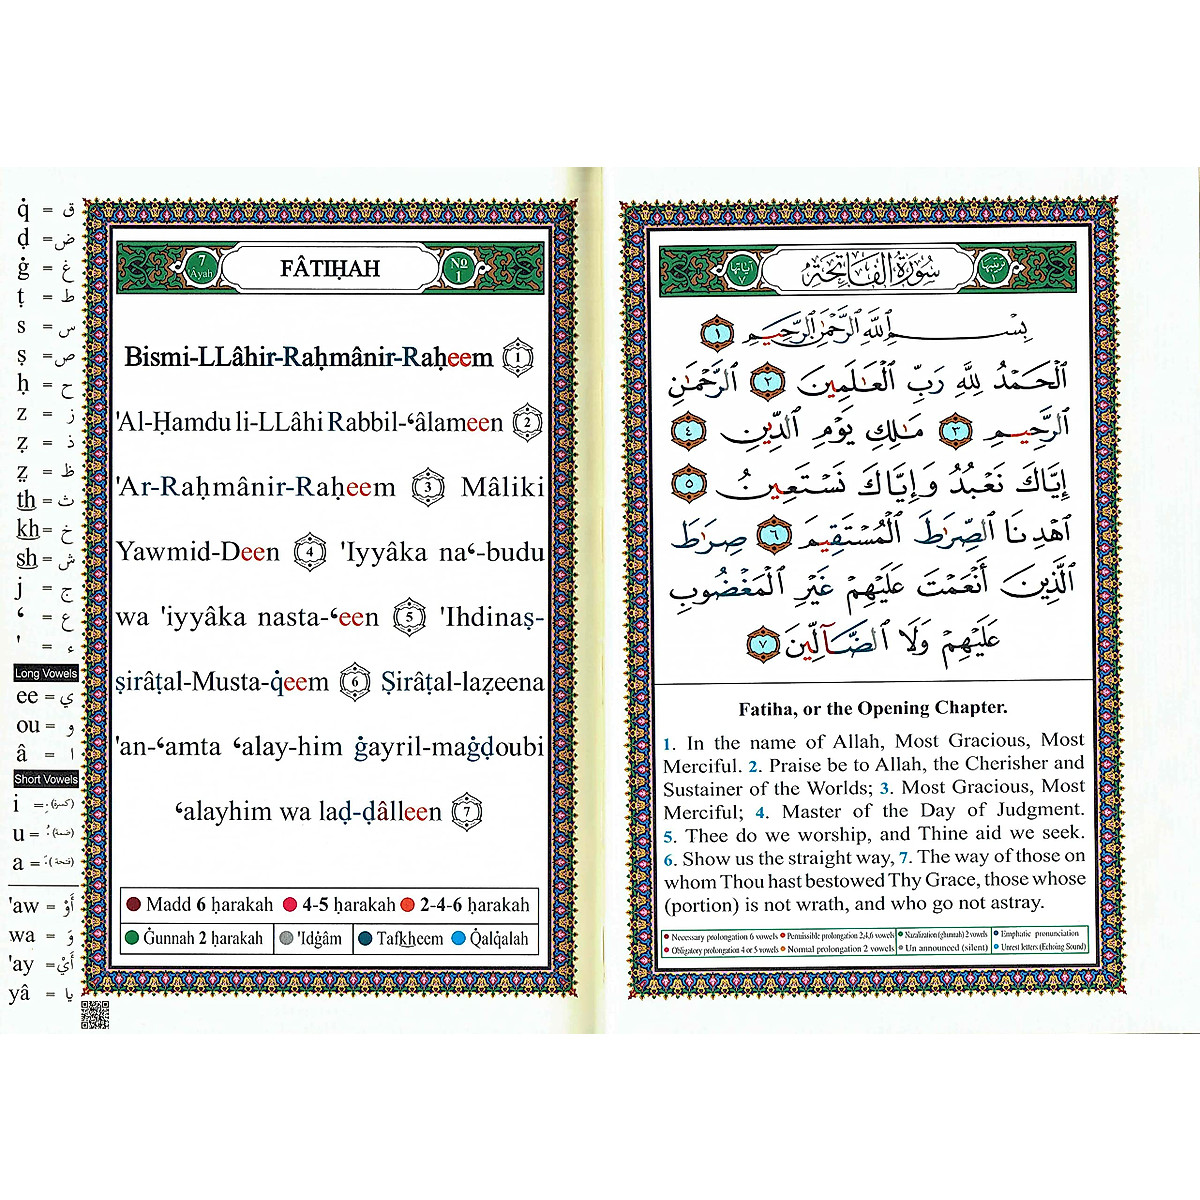 q̇ = ق
ḍ = ض
ġ = غ
ṭ = ط
s = س
ṣ = ص
ḥ = ح
z = ز
ẓ = ذ
ẓ̤ = ظ
th = ث
kh = خ
sh = ش
j = ج
ʿ = ع
' = ء
Long Vowels
ee = ي
ou = و
â = ا
Short Vowels
i = (كسرة)
u = (ضمة)
a = (فتحة)
'aw = أَوْ
wa = وَ
'ay = أَيْ
yâ = يا
7
'Âyah
FÂTIḤAH
No
1
Bismi-LLâhir-Raḥmânir-Raḥeem 1
'Al-Ḥamdu li-LLâhi Rabbil-ʿâlameen 2
'Ar-Raḥmânir-Raḥeem 3 Mâliki
Yawmid-Deen 4 'Iyyâka naʿ-budu
wa 'iyyâka nasta-ʿeen 5 'Ihdinaṣ-
ṣirâṭal-Musta-q̇eem 6 Ṣirâṭal-laẓeena
'an-ʿamta ʿalay-him ġayril-maġḍoubi
ʿalayhim wa laḍ-ḍâlleen 7
Madd 6 ḥarakah 4-5 ḥarakah 2-4-6 ḥarakah
Ġunnah 2 ḥarakah 'Idġâm Tafkheem Q̇alq̇alah
ترتيبها
١
سُورَةُ الفَاتِحَةِ
آياتها
٧
بِسْمِ ٱللَّهِ ٱلرَّحْمَٰنِ ٱلرَّحِيمِ ١
ٱلْحَمْدُ لِلَّهِ رَبِّ ٱلْعَٰلَمِينَ ٢ ٱلرَّحْمَٰنِ
ٱلرَّحِيمِ ٣ مَٰلِكِ يَوْمِ ٱلدِّينِ ٤
إِيَّاكَ نَعْبُدُ وَإِيَّاكَ نَسْتَعِينُ ٥
ٱهْدِنَا ٱلصِّرَٰطَ ٱلْمُسْتَقِيمَ ٦ صِرَٰطَ
ٱلَّذِينَ أَنْعَمْتَ عَلَيْهِمْ غَيْرِ ٱلْمَغْضُوبِ
عَلَيْهِمْ وَلَا ٱلضَّآلِّينَ ٧
Fatiha, or the Opening Chapter.
1. In the name of Allah, Most Gracious, Most
Merciful. 2. Praise be to Allah, the Cherisher and
Sustainer of the Worlds; 3. Most Gracious, Most
Merciful; 4. Master of the Day of Judgment.
5. Thee do we worship, and Thine aid we seek.
6. Show us the straight way, 7. The way of those on
whom Thou hast bestowed Thy Grace, those whose
(portion) is not wrath, and who go not astray.
Necessary prolongation 6 vowels Permissible prolongation 2,4,6 vowels Nazalization (ghunnah) 2 vowels Emphatic pronunciation
Obligatory prolongation 4 or 5 vowels Normal prolongation 2 vowels Un announced (silent) Unrest letters (Echoing Sound)